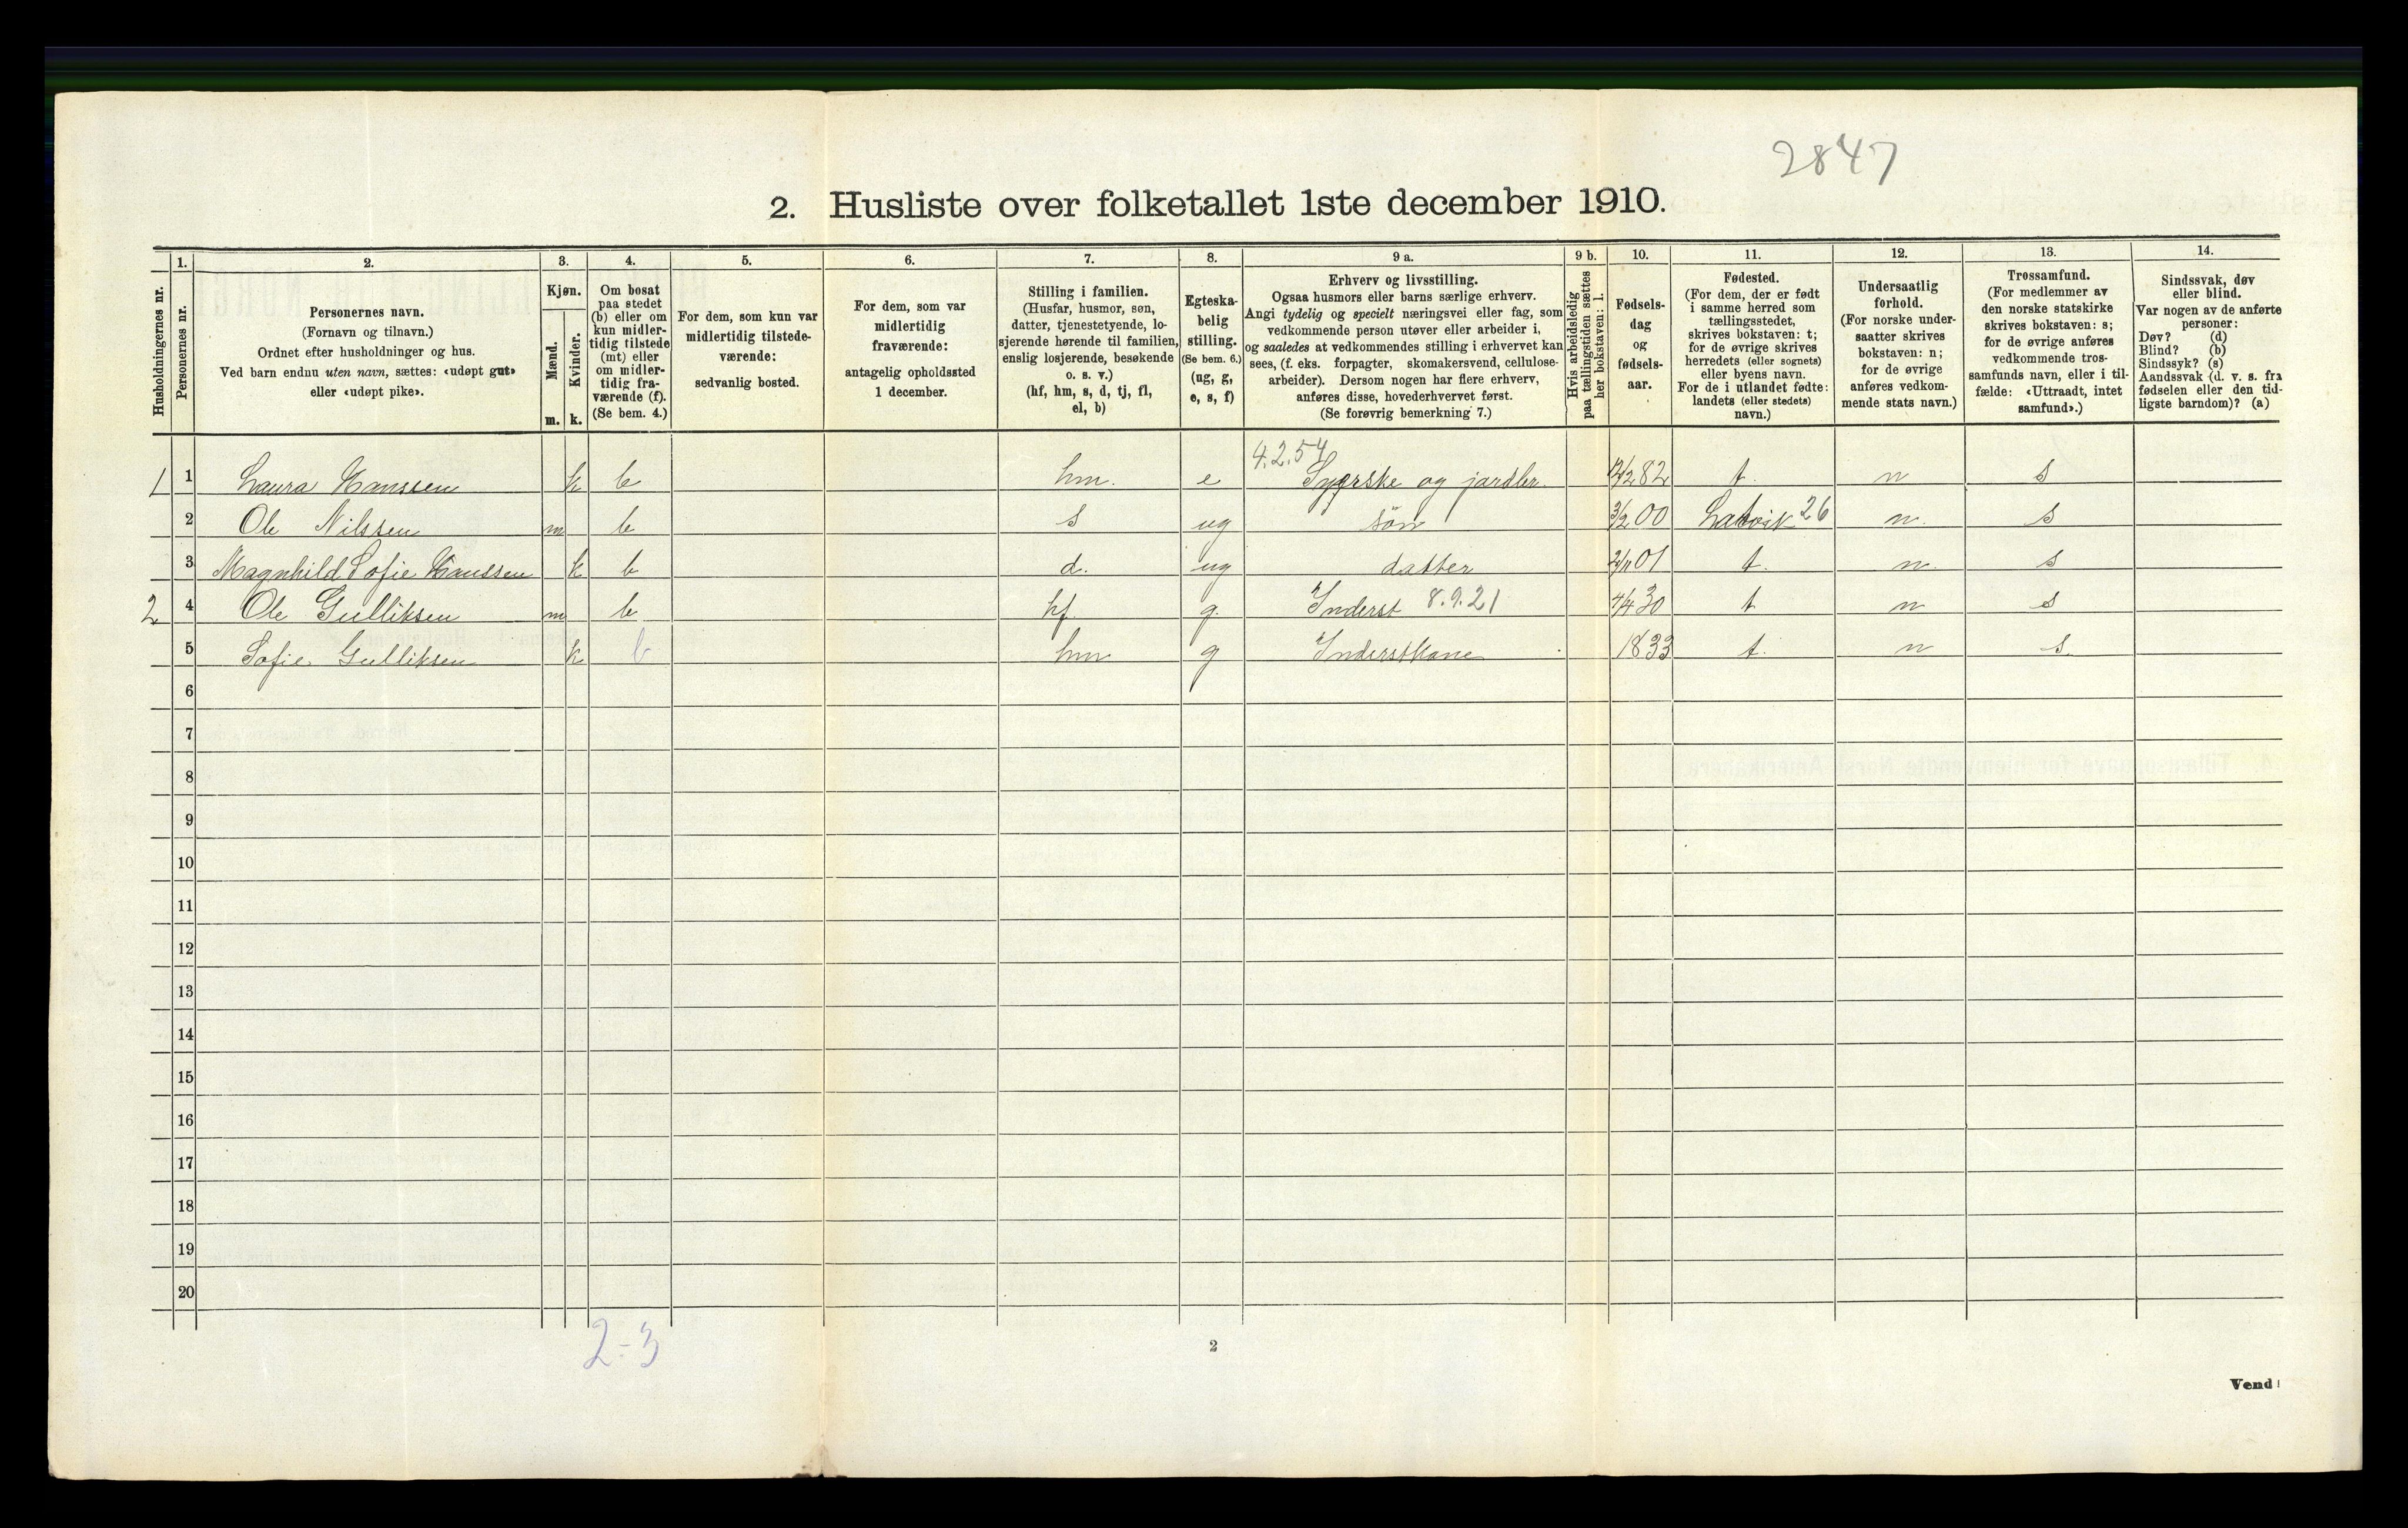 2847
2. Husliste over folketallet 1ste december 1910.
Husholdningernes nr.
1. Personernes nr.
2. Personernes navn. (Fornavn og tilnavn.) Ordnet efter husholdninger og hus. Ved barn endnu uten navn, sættes: «udøpt gut» eller «udøpt pike».
3. Kjøn. Mænd. m. Kvinder. k.
4. Om bosat paa stedet (b) eller om kun midler-tidig tilstede (mt) eller om midler-tidig fra-værende (f). (Se bem. 4.)
5. For dem, som kun var midlertidig tilstede-værende: sedvanlig bosted.
6. For dem, som var midlertidig fraværende: antagelig opholdssted 1 december.
7. Stilling i familien. (Husfar, husmor, søn, datter, tjenestetyende, lo-sjerende hørende til familien, enslig losjerende, besøkende o. s. v.) (hf, hm, s, d, tj, fl, el, b)
8. Egteska-belig stilling. (Se bem. 6.) (ug, g, e, s, f)
9 a. Erhverv og livsstilling. Ogsaa husmors eller barns særlige erhverv. Angi tydelig og specielt næringsvei eller fag, som vedkommende person utøver eller arbeider i, og saaledes at vedkommendes stilling i erhvervet kan sees, (f. eks. forpagter, skomakersvend, cellulose-arbeider). Dersom nogen har flere erhverv, anføres disse, hovederhvervet først. (Se forøvrig bemerkning 7.)
9 b. Hvis arbeidsledig paa tællingstiden sættes her bokstaven: l.
10. Fødsels-dag og fødsels-aar.
11. Fødested. (For dem, der er født i samme herred som tællingsstedet, skrives bokstaven: t; for de øvrige skrives herredets (eller sognets) eller byens navn. For de i utlandet fødte: landets (eller stedets) navn.)
12. Undersaatlig forhold. (For norske under-saatter skrives bokstaven: n; for de øvrige anføres vedkom-mende stats navn.)
13. Trossamfund. (For medlemmer av den norske statskirke skrives bokstaven: s; for de øvrige anføres vedkommende tros-samfunds navn, eller i til-fælde: «Uttraadt, intet samfund».)
14. Sindssvak, døv eller blind. Var nogen av de anførte personer: Døv? (d) Blind? (b) Sindssyk? (s) Aandssvak (d. v. s. fra fødselen eller den tid-ligste barndom)? (a)
4.2.54
1 1 Laura Hanssen k b hm. e Syerske og jordbr. 12/2 82 t. n s
2 Ole Nilssen m b s ug søn 3/2 00 26 n. s
3 Magnhild Sofie Hanssen k b d. ug datter 01 t. n. s
2 4 Ole Gulliksen m b hf g. Inderst 8.9.21 7/4 30 t n s
5 Sofie Gulliksen k b hm g Inderstkone 1833 t. n s.
6
7
8
9
10
11
12
13
14
15
16
17
18
19
20
2-3
2
Vend!